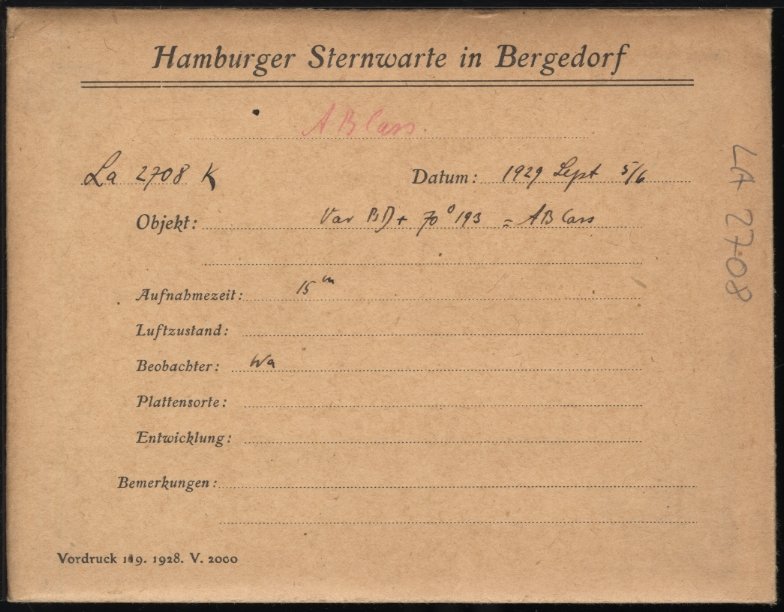 Hamburger Sternwarte in Bergedorf
AB Cass
La 2708 K
Datum: 1929 Sept 5/6
Objekt: Var BD + 70° 193 = AB Cass
Aufnahmezeit: 15 m
Luftzustand:
Beobachter: Wa
Plattensorte:
Entwicklung:
Bemerkungen:
Vordruck 119. 1928. V. 2000
LA 2708